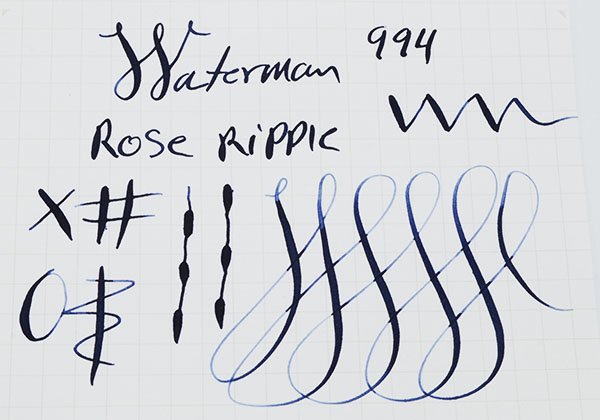 Waterman 994
Rose Ripple
X #